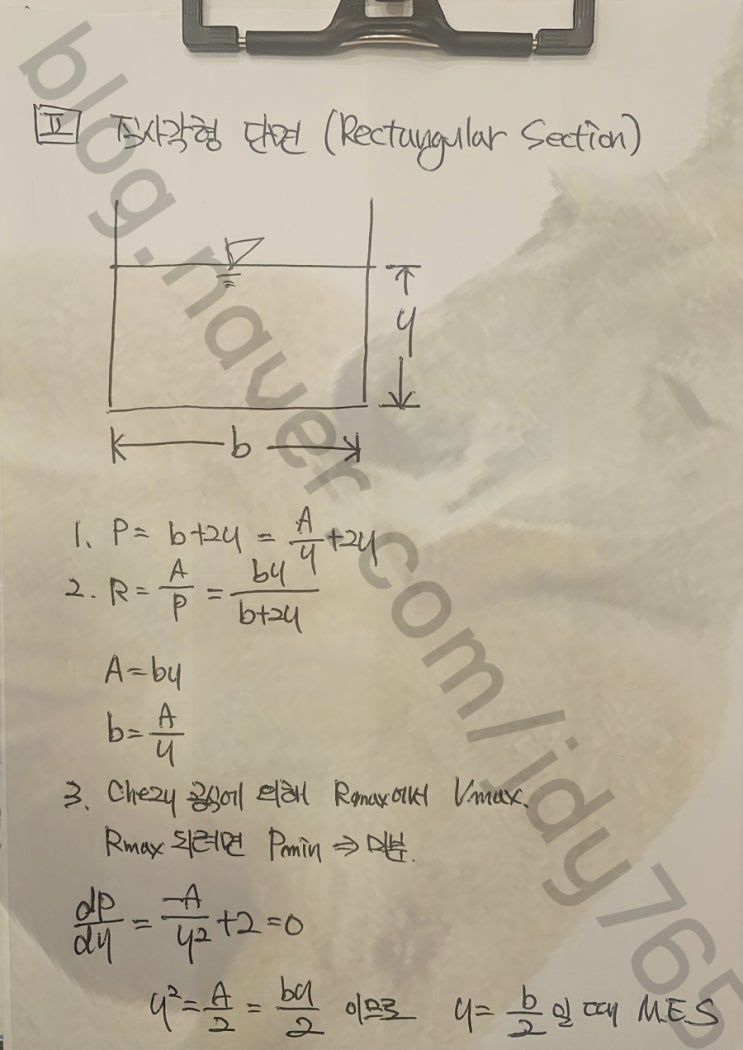 II 직사각형 단면 (Rectangular Section)
y
b
1. P = b+2y = A/y + 2y
2. R = A/P = by/(b+2y)
A = by
b = A/y
3. Chezy 공식에 의해 Rmax에서 Vmax.
Rmax 되려면 Pmin ⇒ 미분.
dP/dy = -A/y² + 2 = 0
y² = A/2 = by/2 이므로 y = b/2 일 때 M.E.S
blog.naver.com/jdy765